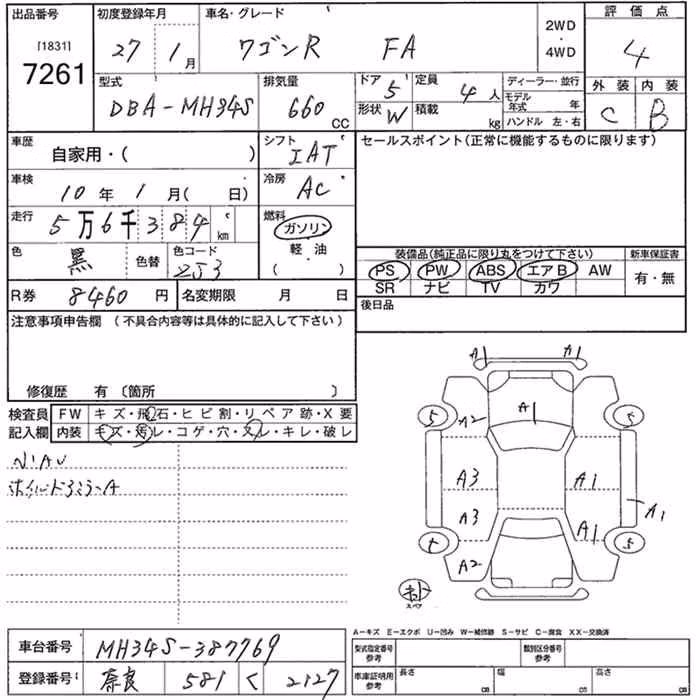 出品番号 初度登録年月 車名・グレード 2WD ・ 4WD 評 価 点
[1831] 7261 27 1月 ワゴンR FA 4
型式 排気量 ドア 5 定員 4人 ディーラー・並行 外 装 内 装
DBA-MH34S 660 CC 形状 W 積載 kg モデル年式 年 C B
ハンドル 左・右
車歴 自家用・( ) シフト IAT セールスポイント(正常に機能するものに限ります)
車検 10年 1月( 日) 冷房 AC
走行 5万6千384 km 燃料 ガソリン
軽・油
( )
色 黒 色替 色コード
装備品(純正品に限り丸をつけて下さい) 新車保証書
PS PW ABS エアB AW 有・無
SR ナビ TV カワ
R券 8460 円 名変期限 月 日 後日品
注意事項申告欄 (不具合内容等は具体的に記入して下さい)
修復歴 有 〔箇所 〕
検査員 FW キズ・飛石・ヒビ割・リペア跡・X要
記入欄 内装 キズ・汚レ・コゲ・穴・スレ・キレ・破レ
A1 A1
5 A2 A1 5
A3 A1
A3 A1 A1
5 A2 5
スペア
A-キズ E-エクボ U-凹み W-補修跡 S-サビ C-腐食 XX-交換済
車台番号 MH34S-387769 型式指定番号 参考 類別区分番号 参考
登録番号 奈良 581 く 2127 車庫証明用 参考 長さ cm 幅 cm 高さ cm